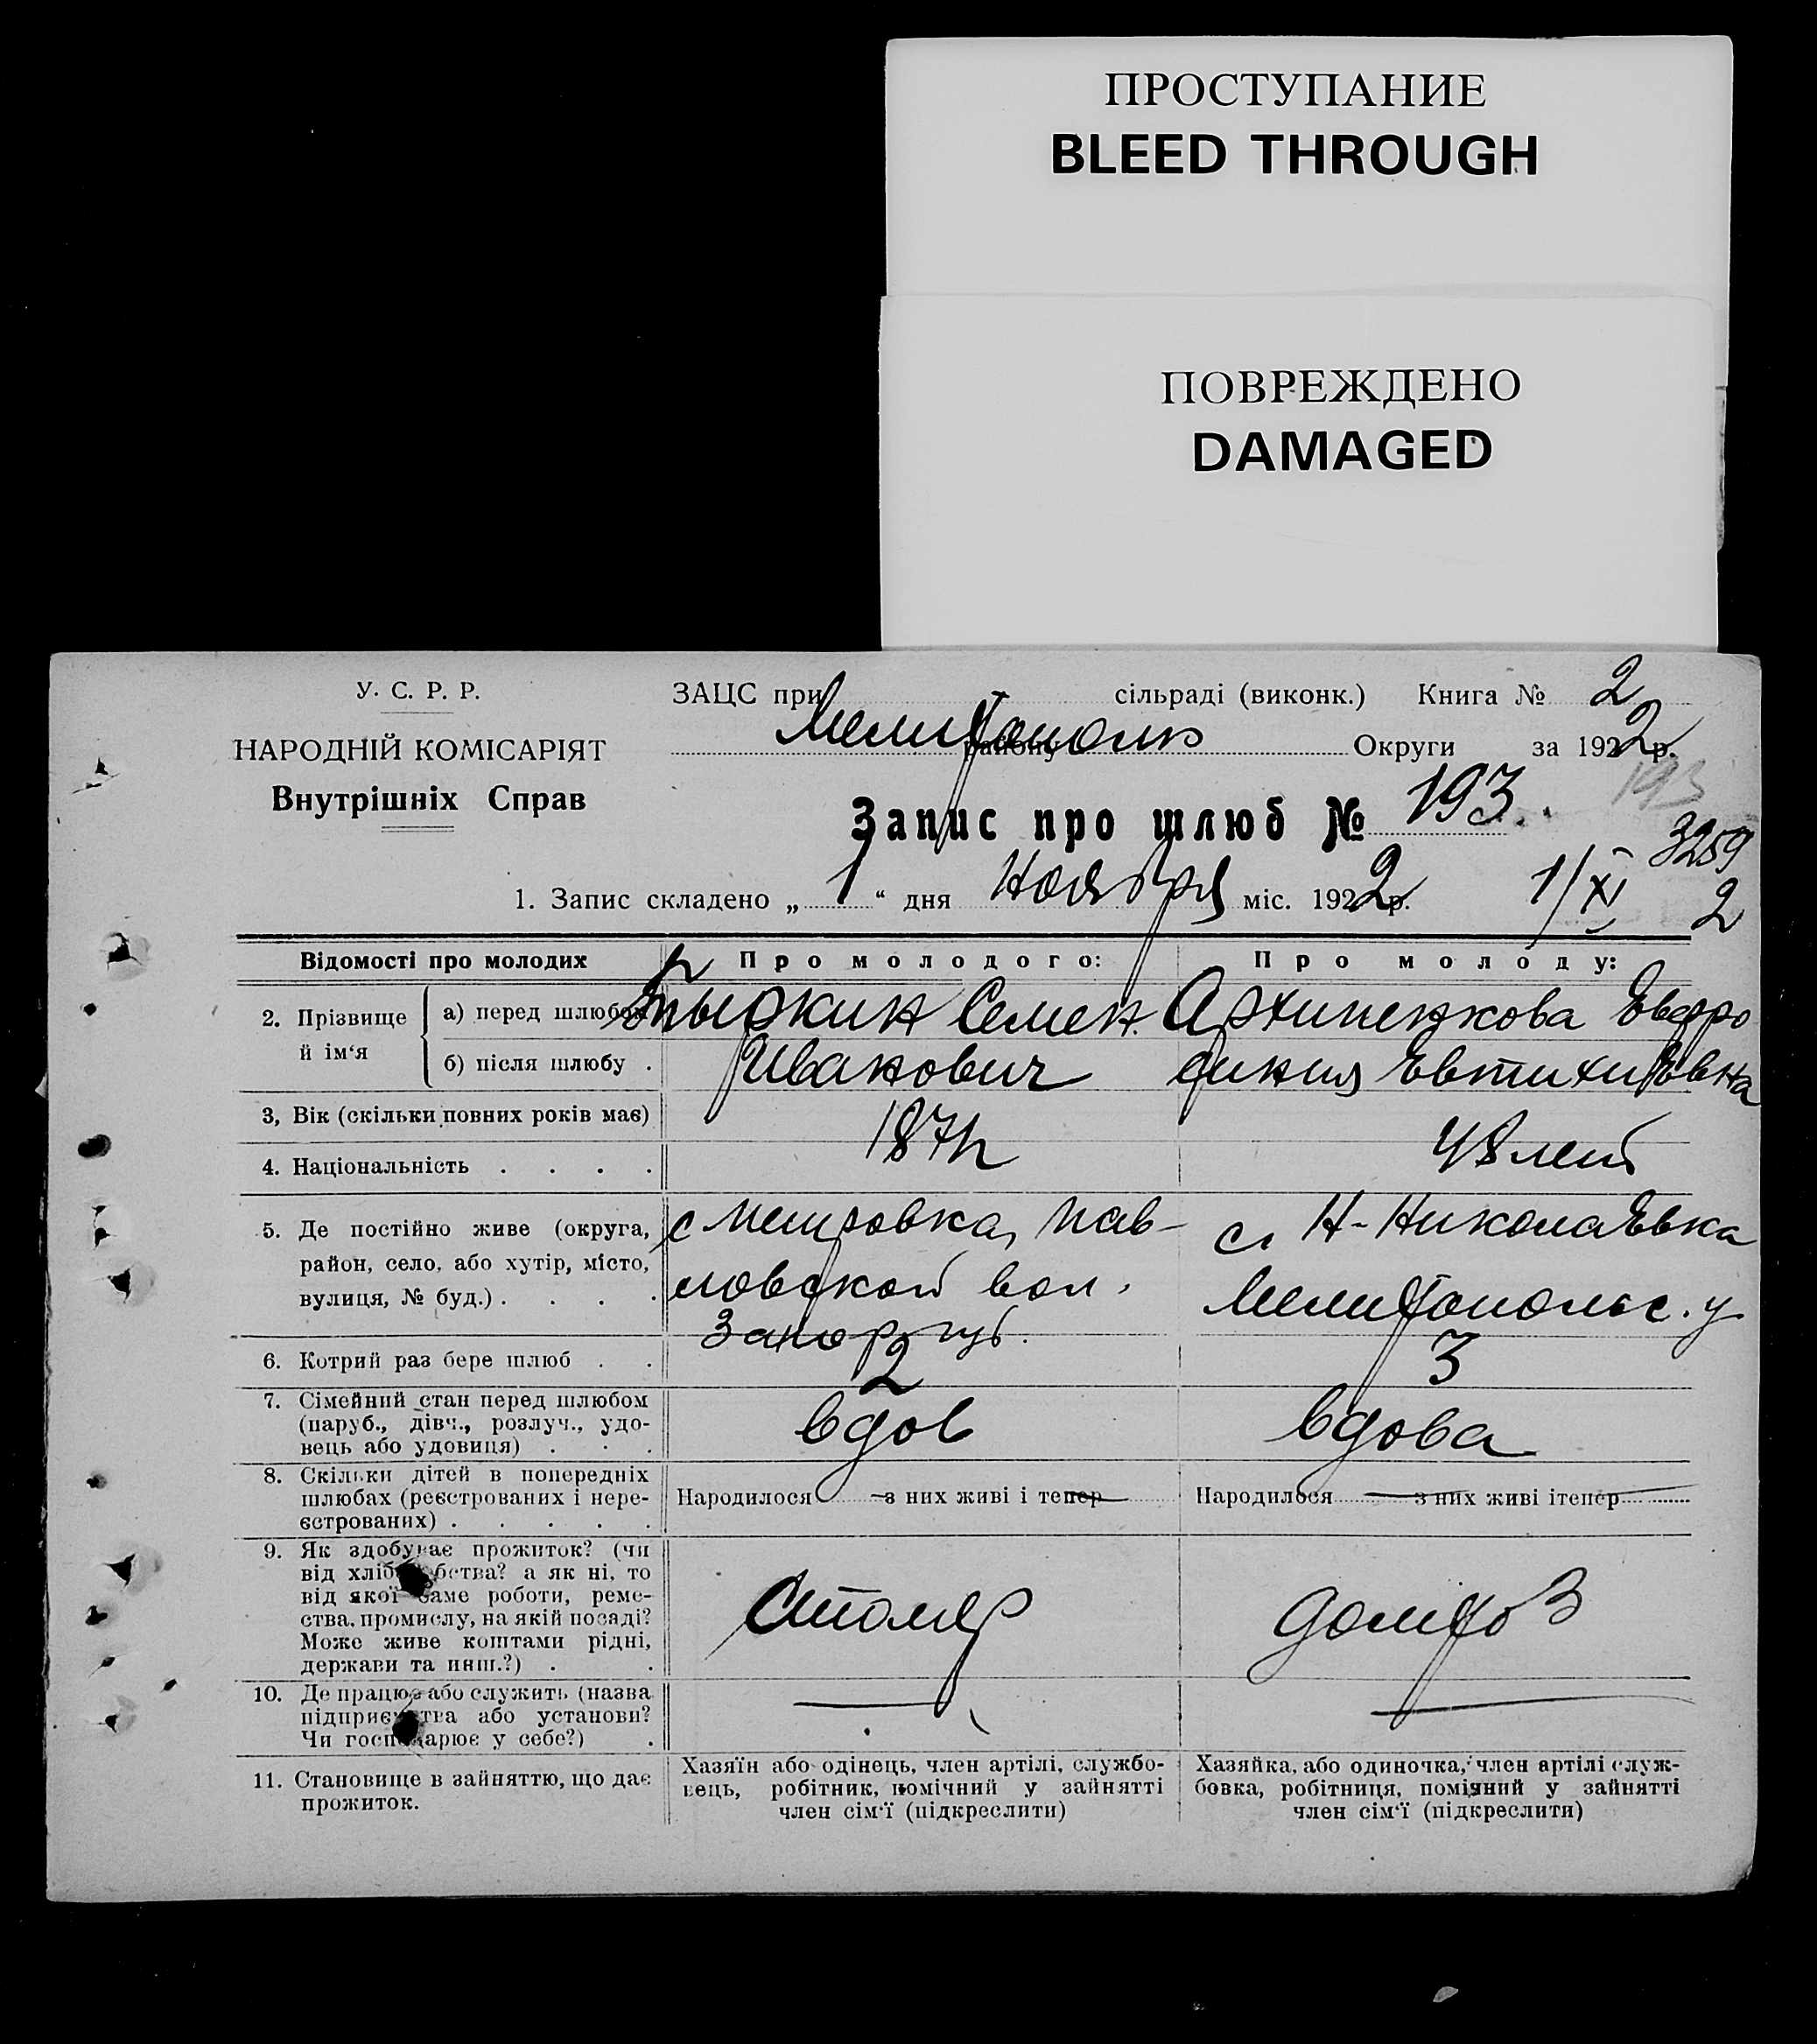 ПРОСТУПАНИЕ
BLEED THROUGH
ПОВРЕЖДЕНО
DAMAGED
У. С. Р. Р.
НАРОДНІЙ КОМІСАРІЯТ
Внутрішніх Справ
ЗАЦС при сільраді (виконк.) Книга № 2
Мелитополь району Округи за 1922 р.
193
Запис про шлюб № 193.
3259
1. Запис складено „ 1 “ дня Ноября міс. 1922 р. 1/XI 2
Відомості про молодих
Про молодого:
Про молоду:
2. Прізвище й ім‘я
а) перед шлюбом
Семен
Архипенкова Евфро
б) після шлюбу .
Иванович
синия Евтихиевна
3, Вік (скільки повних років має)
48 лет
4. Національність . . . .
5. Де постійно живе (округа,
район, село, або хутір, місто,
вулиця, № буд.) . . . .
с Петровка, Пав-
ловской вол.
Запор губ.
с. Н-Николаевка
Мелитопольс. у
6. Котрий раз бере шлюб . .
2
3
7. Сімейний стан перед шлюбом
(паруб., дівч., розлуч., удо-
вець або удовиця) . . .
вдов
вдова
8. Скільки дітей в попередніх
шлюбах (реєстрованих і нере-
єстрованих) . . . . .
Народилося з них живі і тепер
Народилося з них живі ітепер
9. Як здобуває прожиток? (чи
від хліб бства? а як ні, то
від якої саме роботи, реме-
ства, промислу, на якій посаді?
Може живе коштами рідні,
держави та инш.?) . .
Столяр
домхоз
10. Де працює або служить (назва
підприємства або установи?
Чи господарює у себе?) .
11. Становище в зайняттю, що дає
прожиток.
Хазяїн або одінець, член артілі, службо-
вець, робітник, помічний у зайнятті
член сім‘ї (підкреслити)
Хазяйка, або одиночка, член артілі служ-
бовка, робітниця, помічний у зайнятті
член сім‘ї (підкреслити)